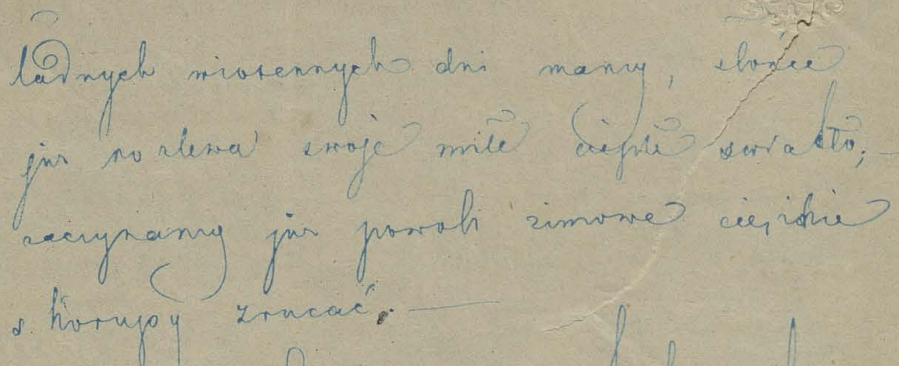 ładnych wiosennych dni mamy, słońce
już rozlewa swoje miłe ciepłe światło; —
zaczynamy już powoli zimowe cięzkie
skorupy zrucać. —